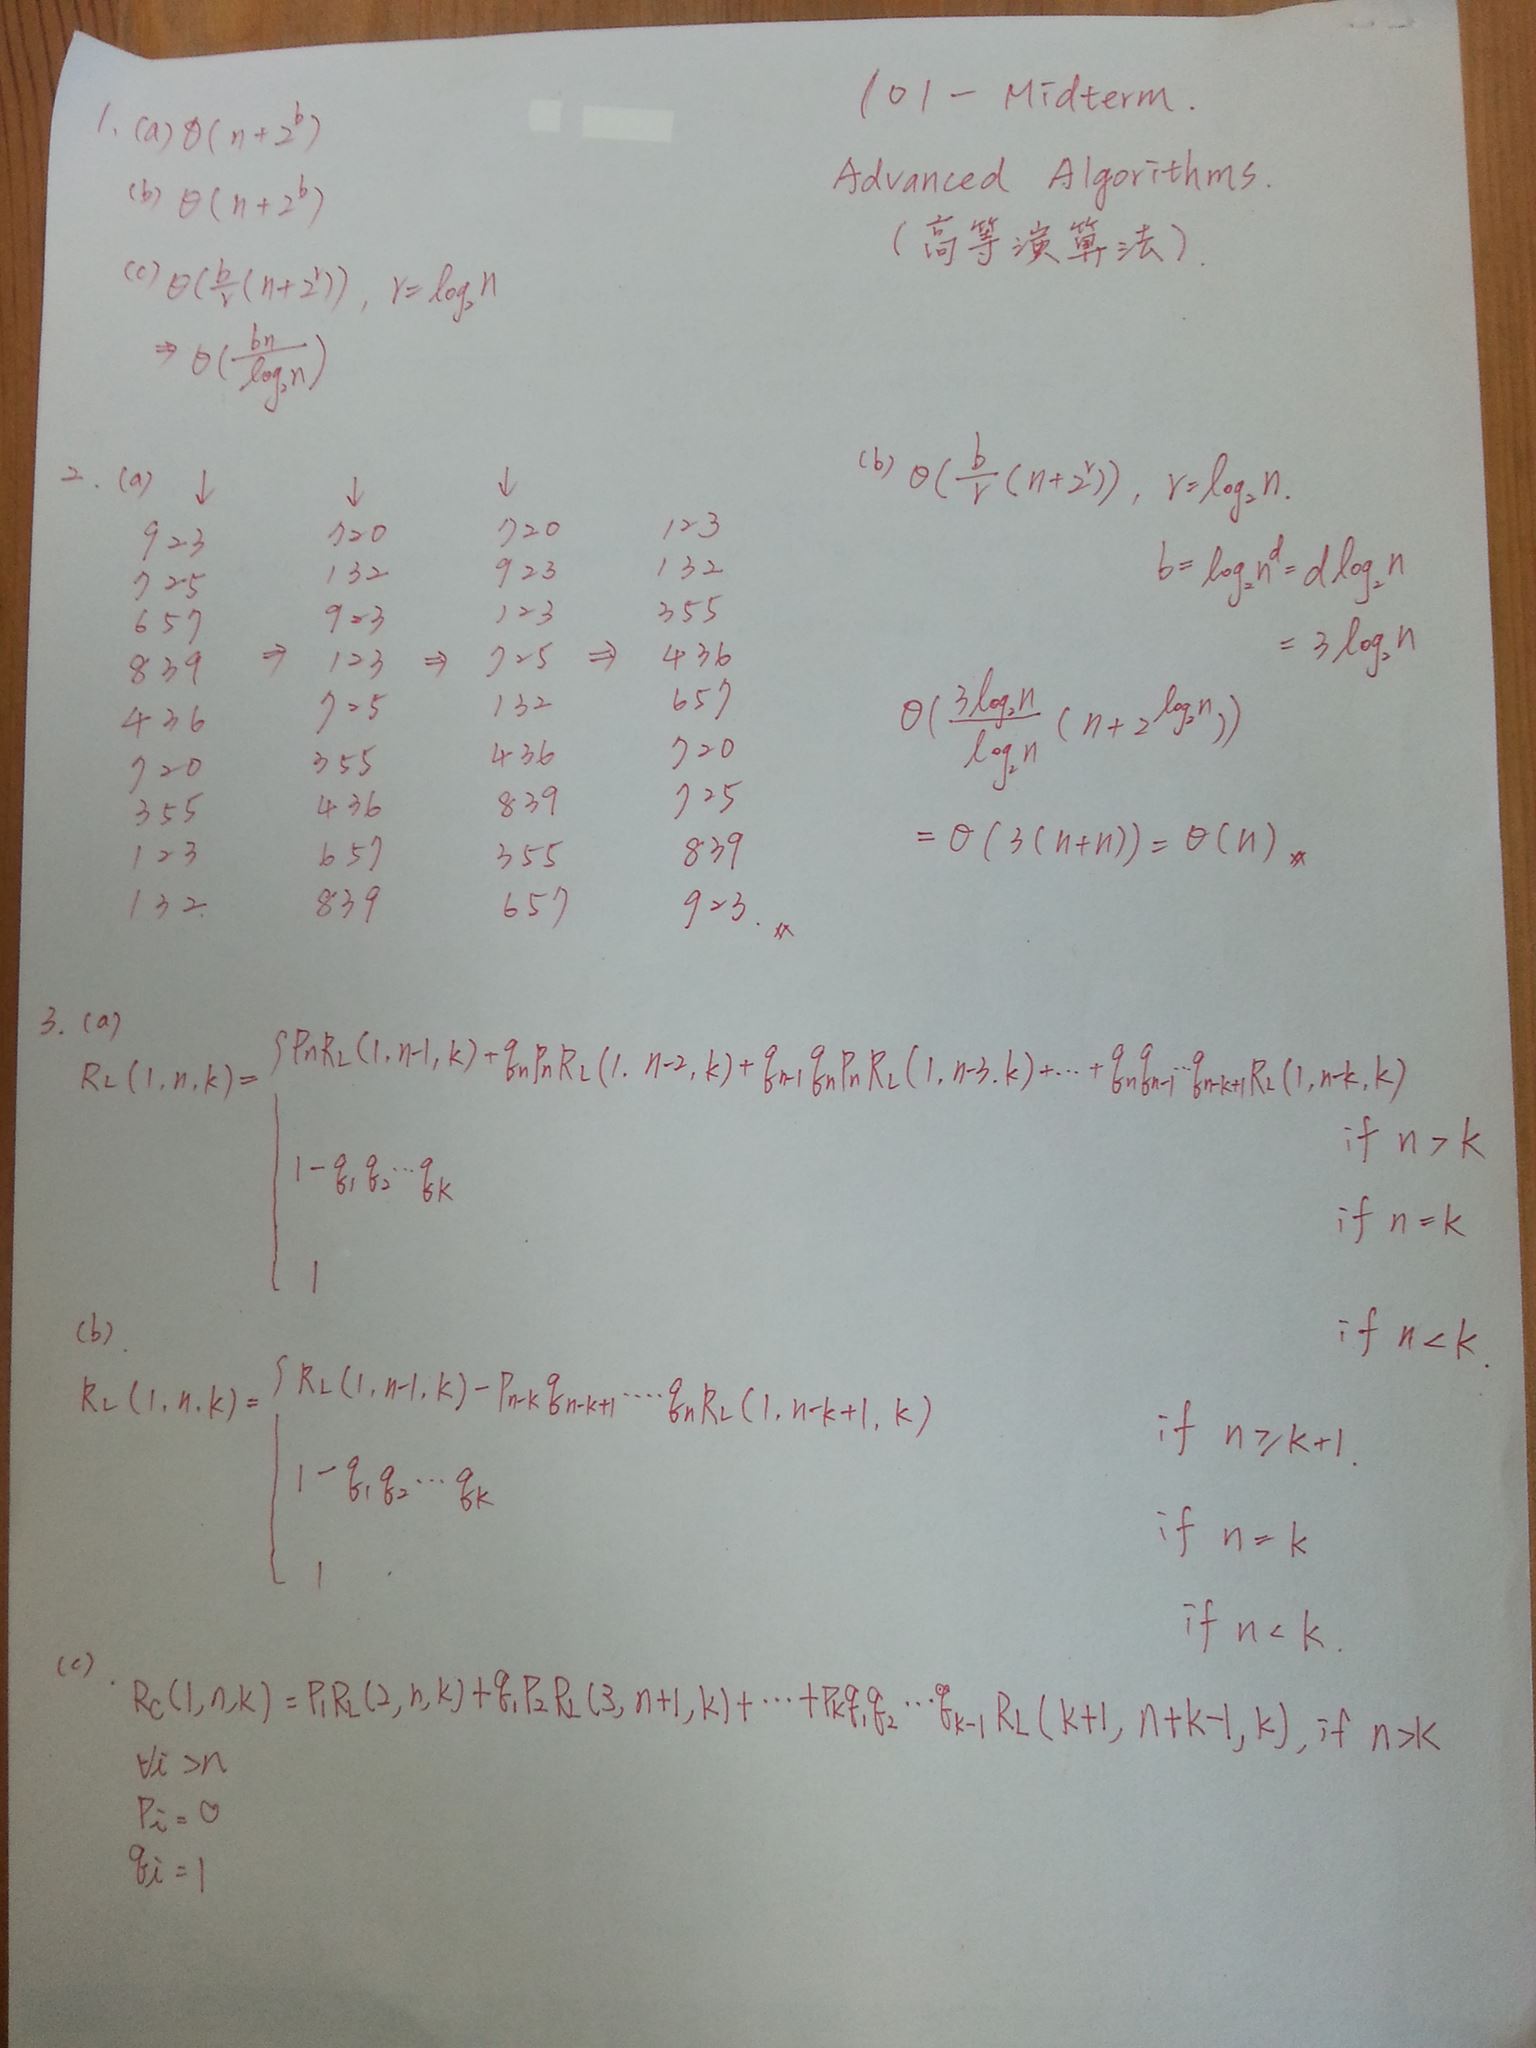 101 - Midterm.
Advanced Algorithms.
(高等演算法).
1. (a) θ(n+2^b)
(b) θ(n+2^b)
(c) θ(b/r(n+2^r)), r=log₂n
⇒ θ(bn/log₂n)
2. (a) ↓ ↓ ↓
923 720 720 123
725 132 923 132
657 923 123 355
839 ⇒ 123 ⇒ 725 ⇒ 436
436 725 132 657
720 355 436 720
355 436 839 725
123 657 355 839
132. 839 657 923.
(b) θ(b/r(n+2^r)), r=log₂n.
b=log₂n^d=dlog₂n
=3log₂n
θ(3log₂n/log₂n(n+2^log₂n))
=θ(3(n+n))=θ(n)
3. (a)
R_L(1,n,k)={P_nR_L(1,n-1,k)+q_nP_nR_L(1.n-2,k)+q_{n-1}q_nP_nR_L(1,n-3.k)+...+q_nq_{n-1}...q_{n-k+1}R_L(1,n-k,k)
if n>k
1-q₁q₂...q_k
if n=k
1
if n<k.
(b).
R_L(1.n.k)={R_L(1,n-1,k)-P_{n-k}q_{n-k+1}....q_nR_L(1,n-k+1,k)
if n≥k+1.
1-q₁q₂...q_k
if n=k
1
if n<k.
(c).
R_C(1,n,k)=P₁R_L(2,n,k)+q₁P₂R_L(3,n+1,k)+...+P_kq₁q₂...q_{k-1}R_L(k+1,n+k-1,k), if n>k
∀i>n
P_i=0
q_i=1